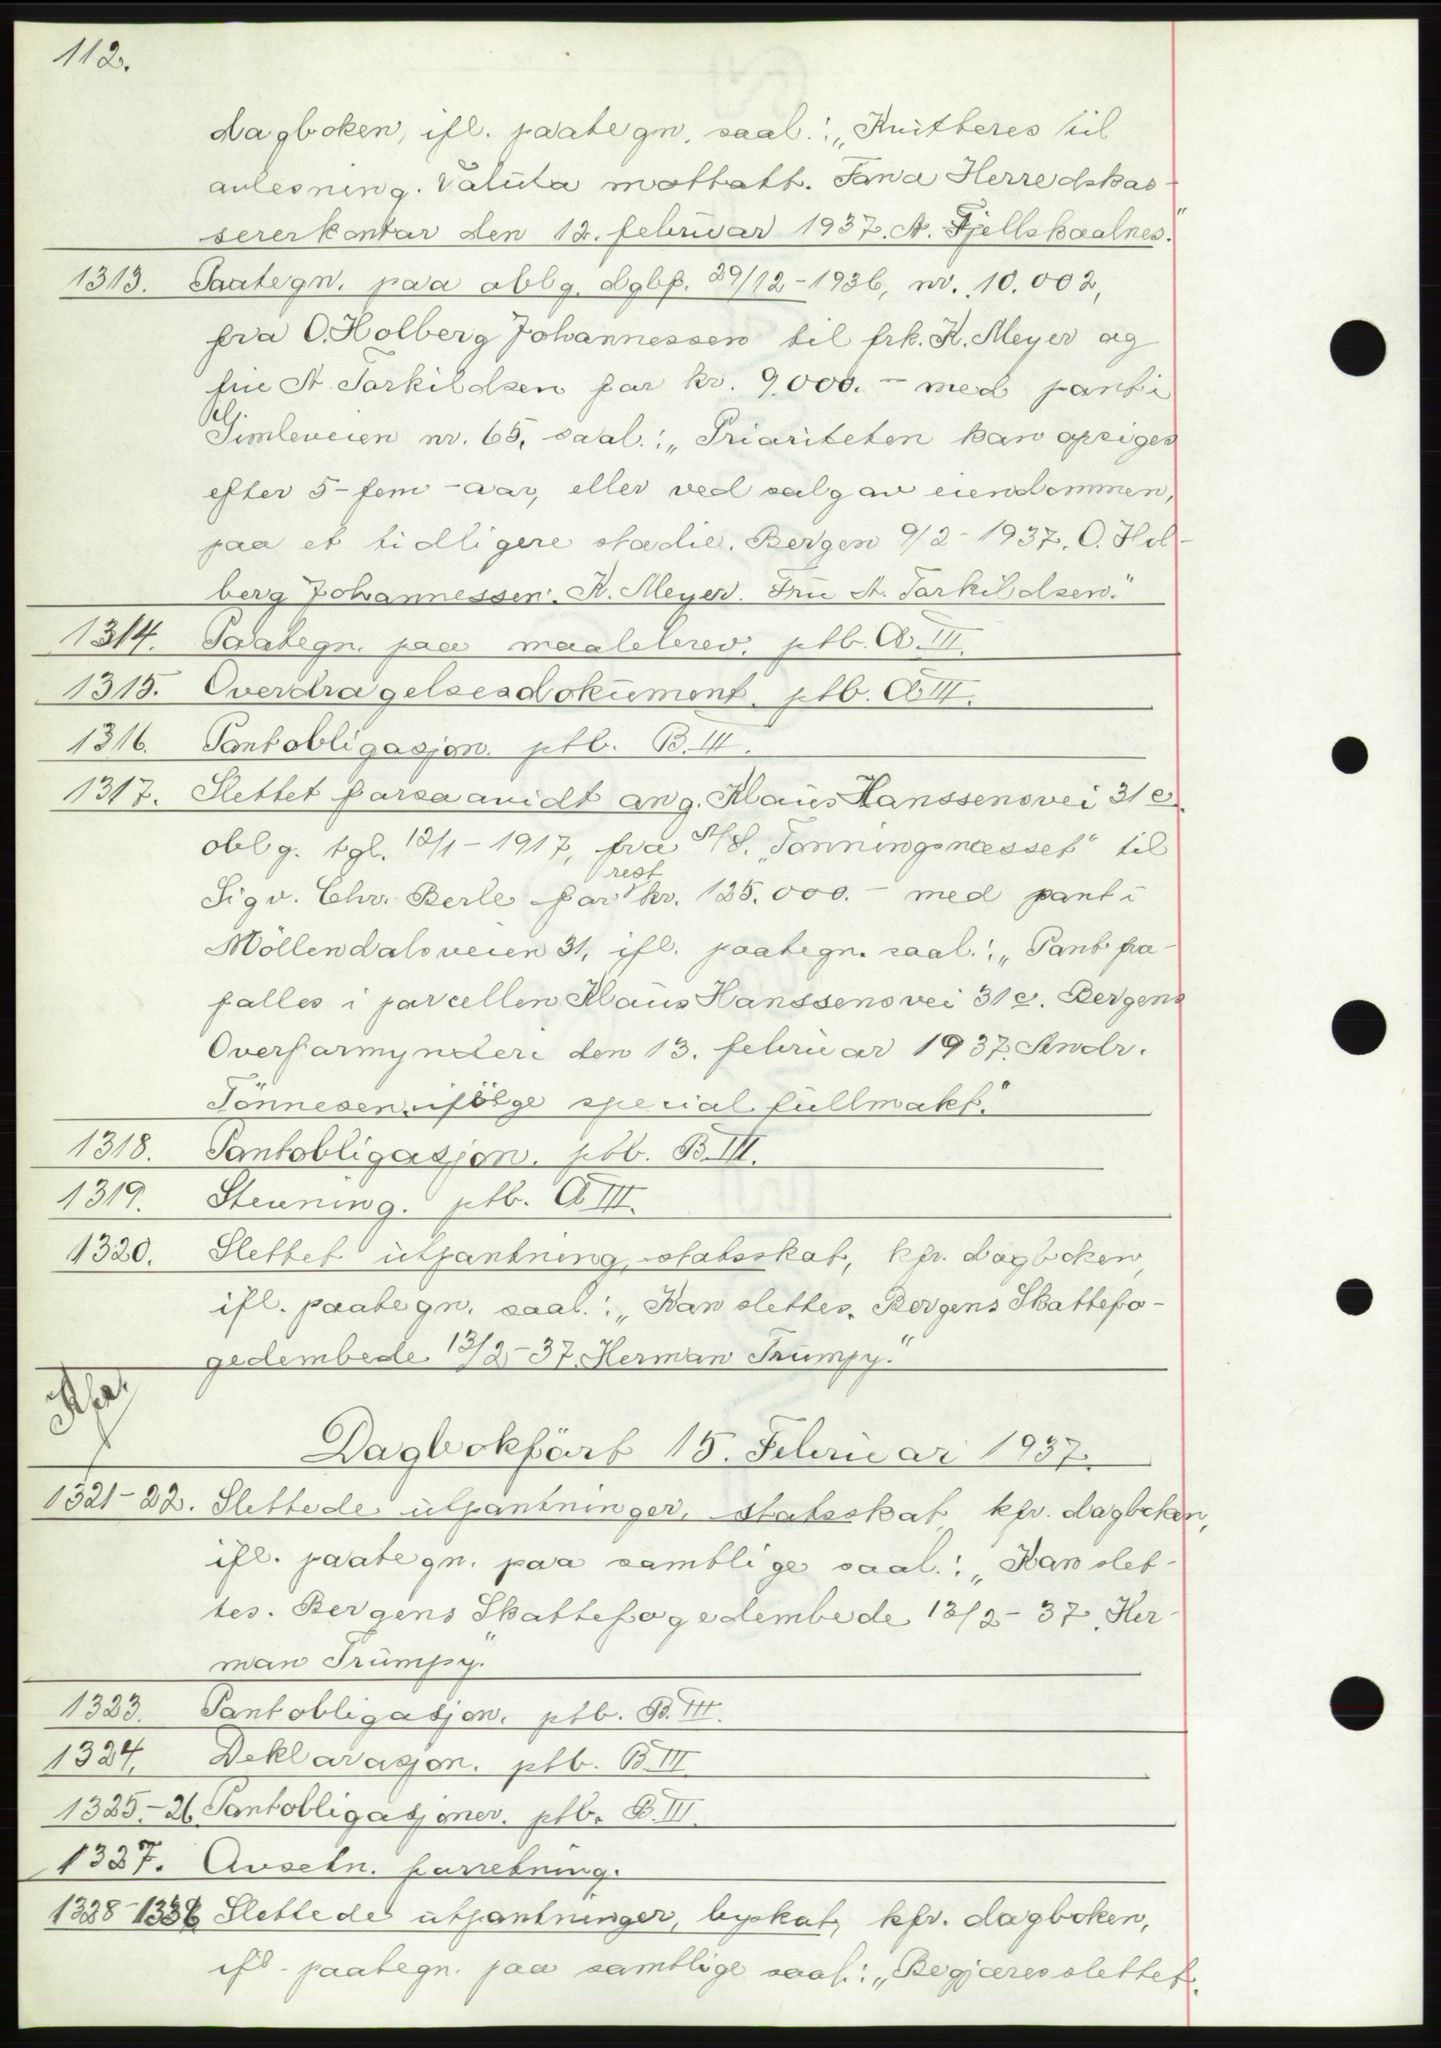 112.
dagboken, ifl. paategn. saal.: „Kvitteres til
avlesning. Valuta mottatt. Fana Herredskas-
sererkontor den 12. februar 1937. A. Fjellskaalnes."
1313. Paategn. paa oblg. dgbf. 29/12-1936, nr. 10.002,
fra O. Holberg Johannessen til frk. K. Meyer og
frue A. Torkildsen for kr. 9.000.- med pant i
Gimleveien nr. 65, saal.: „Prioriteten kan opsiges
efter 5-fem-aar, eller ved salg av eiendommen,
paa et tidligere stadie. Bergen 9/2-1937. O. Hol-
berg Johannessen. K. Meyer. Fru A. Torkildsen."
1314. Paategn. paa maalebrev. ptb. A. III.
1315. Overdragelsesdokument. ptb. A III.
1316. Pantobligasjon. ptb. B. III.
1317. Slettet forsaavidt ang. Klaus Hanssensvei 31 c
oblg. tgl. 12/1-1917, fra A/S. „Tonningsnesset" til
Sigv. Chr. Berle for rest kr. 125.000.- med pant i
Möllendalsveien 31, ifl. paategn. saal.: „Pant fra-
falles i parcellen Klaus Hanssensvei 31 c. Bergens
Overformynderi den 13. februar 1937. Andr.
Tönnesen. ifölge special fullmakt."
1318. Pantobligasjon. ptb. B. III.
1319. Stevning. ptb. A III.
1320. Slettet utpantning, statsskat, kfr. dagboken,
ifl. paategn. saal.: „Kan slettes. Bergens Skattefo-
gedembede 13/2-37. Herman Trumpy."
Dagbokfört 15. Februar 1937.
1321-22. Slettede utpantninger, statsskat, kfr. dagboken,
ifl. paategn. paa samtlige saal.: „Kan slet-
tes. Bergens Skattefogedembede 13/2-37. Her-
man Trumpy."
1323. Pantobligasjon. ptb. B. III.
1324. Deklarasjon. ptb. B. III
1325.-26. Pantobligasjoner. ptb. B. III.
1327. Avsetn. forretning.
1328-1336 Slettede utpantninger, byskat, kfr. dagboken,
ifl. paategn. paa samtlige saal.: „Begjæres slettet.